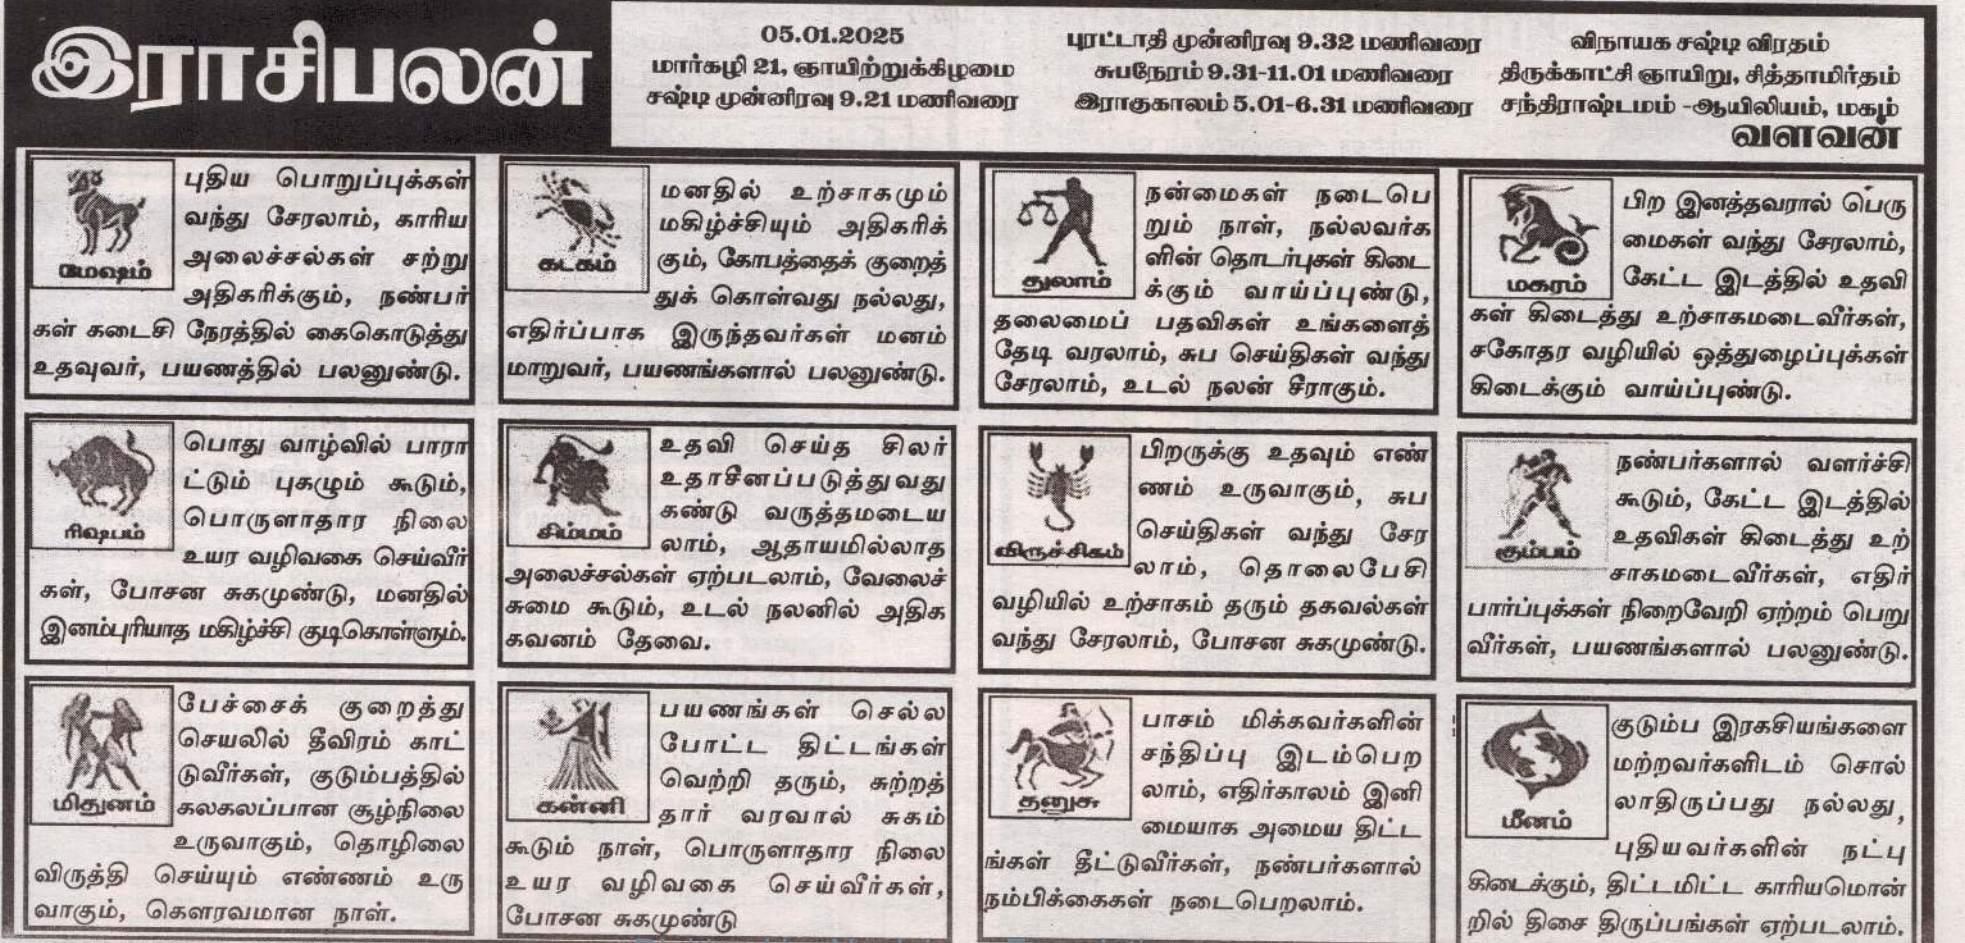 இராசிபலன்
05.01.2025
மார்கழி 21, ஞாயிற்றுக்கிழமை
சஷ்டி முன்னிரவு 9.21 மணிவரை
புரட்டாதி முன்னிரவு 9.32 மணிவரை
சுபநேரம் 9.31-11.01 மணிவரை
இராகுகாலம் 5.01-6.31 மணிவரை
விநாயக சஷ்டி விரதம்
திருக்காட்சி ஞாயிறு, சித்தாமிர்தம்
சந்திராஷ்டமம் -ஆயிலியம், மகம்
வளவன்
மேஷம்
புதிய பொறுப்புக்கள்
வந்து சேரலாம், காரிய
அலைச்சல்கள் சற்று
அதிகரிக்கும், நண்பர்
கள் கடைசி நேரத்தில் கைகொடுத்து
உதவுவர், பயணத்தில் பலனுண்டு.
ரிஷபம்
பொது வாழ்வில் பாரா
ட்டும் புகழும் கூடும்,
பொருளாதார நிலை
உயர வழிவகை செய்வீர்
கள், போசன சுகமுண்டு, மனதில்
இனம்புரியாத மகிழ்ச்சி குடிகொள்ளும்.
மிதுனம்
பேச்சைக் குறைத்து
செயலில் தீவிரம் காட்
டுவீர்கள், குடும்பத்தில்
கலகலப்பான சூழ்நிலை
உருவாகும், தொழிலை
விருத்தி செய்யும் எண்ணம் உரு
வாகும், கௌரவமான நாள்.
கடகம்
மனதில் உற்சாகமும்
மகிழ்ச்சியும் அதிகரிக்
கும், கோபத்தைக் குறைத்
துக் கொள்வது நல்லது,
எதிர்ப்பாக இருந்தவர்கள் மனம்
மாறுவர், பயணங்களால் பலனுண்டு.
சிம்மம்
உதவி செய்த சிலர்
உதாசீனப்படுத்துவது
கண்டு வருத்தமடைய
லாம், ஆதாயமில்லாத
அலைச்சல்கள் ஏற்படலாம், வேலைச்
சுமை கூடும், உடல் நலனில் அதிக
கவனம் தேவை.
கன்னி
பயணங்கள் செல்ல
போட்ட திட்டங்கள்
வெற்றி தரும், சுற்றத்
தார் வரவால் சுகம்
கூடும் நாள், பொருளாதார நிலை
உயர வழிவகை செய்வீர்கள்,
போசன சுகமுண்டு
துலாம்
நன்மைகள் நடைபெ
றும் நாள், நல்லவர்க
ளின் தொடர்புகள் கிடை
க்கும் வாய்ப்புண்டு,
தலைமைப் பதவிகள் உங்களைத்
தேடி வரலாம், சுப செய்திகள் வந்து
சேரலாம், உடல் நலன் சீராகும்.
விருச்சிகம்
பிறருக்கு உதவும் எண்
ணம் உருவாகும், சுப
செய்திகள் வந்து சேர
லாம், தொலைபேசி
வழியில் உற்சாகம் தரும் தகவல்கள்
வந்து சேரலாம், போசன சுகமுண்டு.
தனுசு
பாசம் மிக்கவர்களின்
சந்திப்பு இடம்பெற
லாம், எதிர்காலம் இனி
மையாக அமைய திட்ட
ங்கள் தீட்டுவீர்கள், நண்பர்களால்
நம்பிக்கைகள் நடைபெறலாம்.
மகரம்
பிற இனத்தவரால் பெரு
மைகள் வந்து சேரலாம்,
கேட்ட இடத்தில் உதவி
கள் கிடைத்து உற்சாகமடைவீர்கள்,
சகோதர வழியில் ஒத்துழைப்புக்கள்
கிடைக்கும் வாய்ப்புண்டு.
கும்பம்
நண்பர்களால் வளர்ச்சி
கூடும், கேட்ட இடத்தில்
உதவிகள் கிடைத்து உற்
சாகமடைவீர்கள், எதிர்
பார்ப்புக்கள் நிறைவேறி ஏற்றம் பெறு
வீர்கள், பயணங்களால் பலனுண்டு.
மீனம்
குடும்ப இரகசியங்களை
மற்றவர்களிடம் சொல்
லாதிருப்பது நல்லது,
புதியவர்களின் நட்பு
கிடைக்கும், திட்டமிட்ட காரியமொன்
றில் திசை திருப்பங்கள் ஏற்படலாம்.